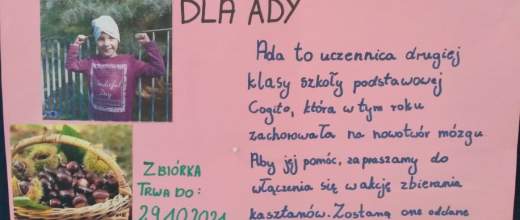 DLA ADY
Ada to uczennica drugiej
klasy szkoły podstawowej
Cogito, która w tym roku
zachorowała na nowotwór mózgu
Aby jej pomóc, zapraszamy do
włączenia się w akcję zbierania
kasztanów. Zostaną one oddane
ZBIÓRKA
TRWA DO:
29.10.2021